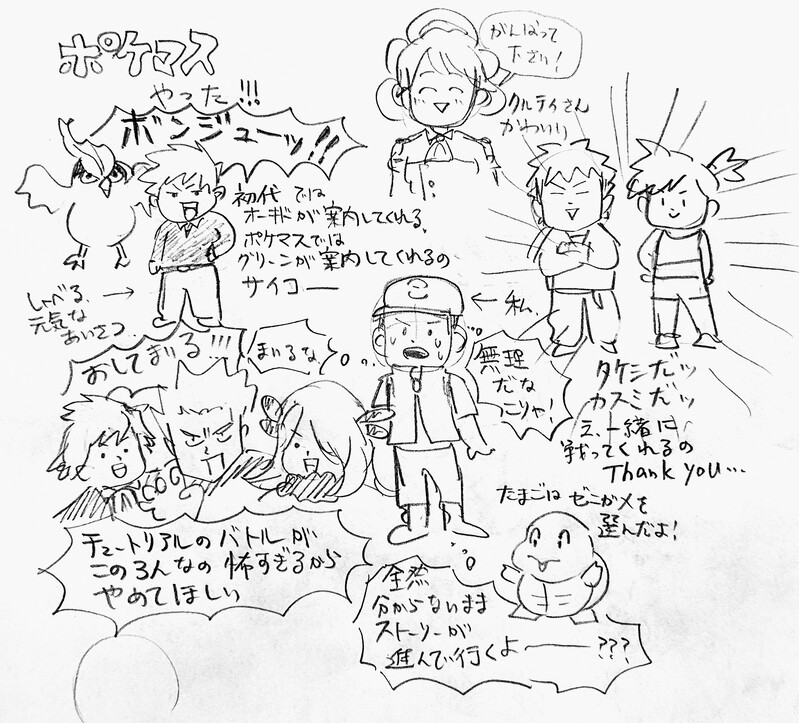 ポケマス
やった!!!
ボンジューッ!!
がんばって
下さい!
クルティさん
かわいい
初代では
オーキドが案内してくれる、
ポケマスでは
グリーンが案内してくれるの
サイコー
しゃべる、→
元気な
あいさつ。
←私。
おしてまいる!!!
まいるな
無理
だな
こりゃ!
タケシだッ
カスミだッ
え、一緒に
戦ってくれるの
Thank you...
たまごはゼニガメを
選んだよ!
チュートリアルのバトルが
この3人なの怖すぎるから
やめてほしい
全然
分からないまま
ストーリーが
進んで行くよ———???